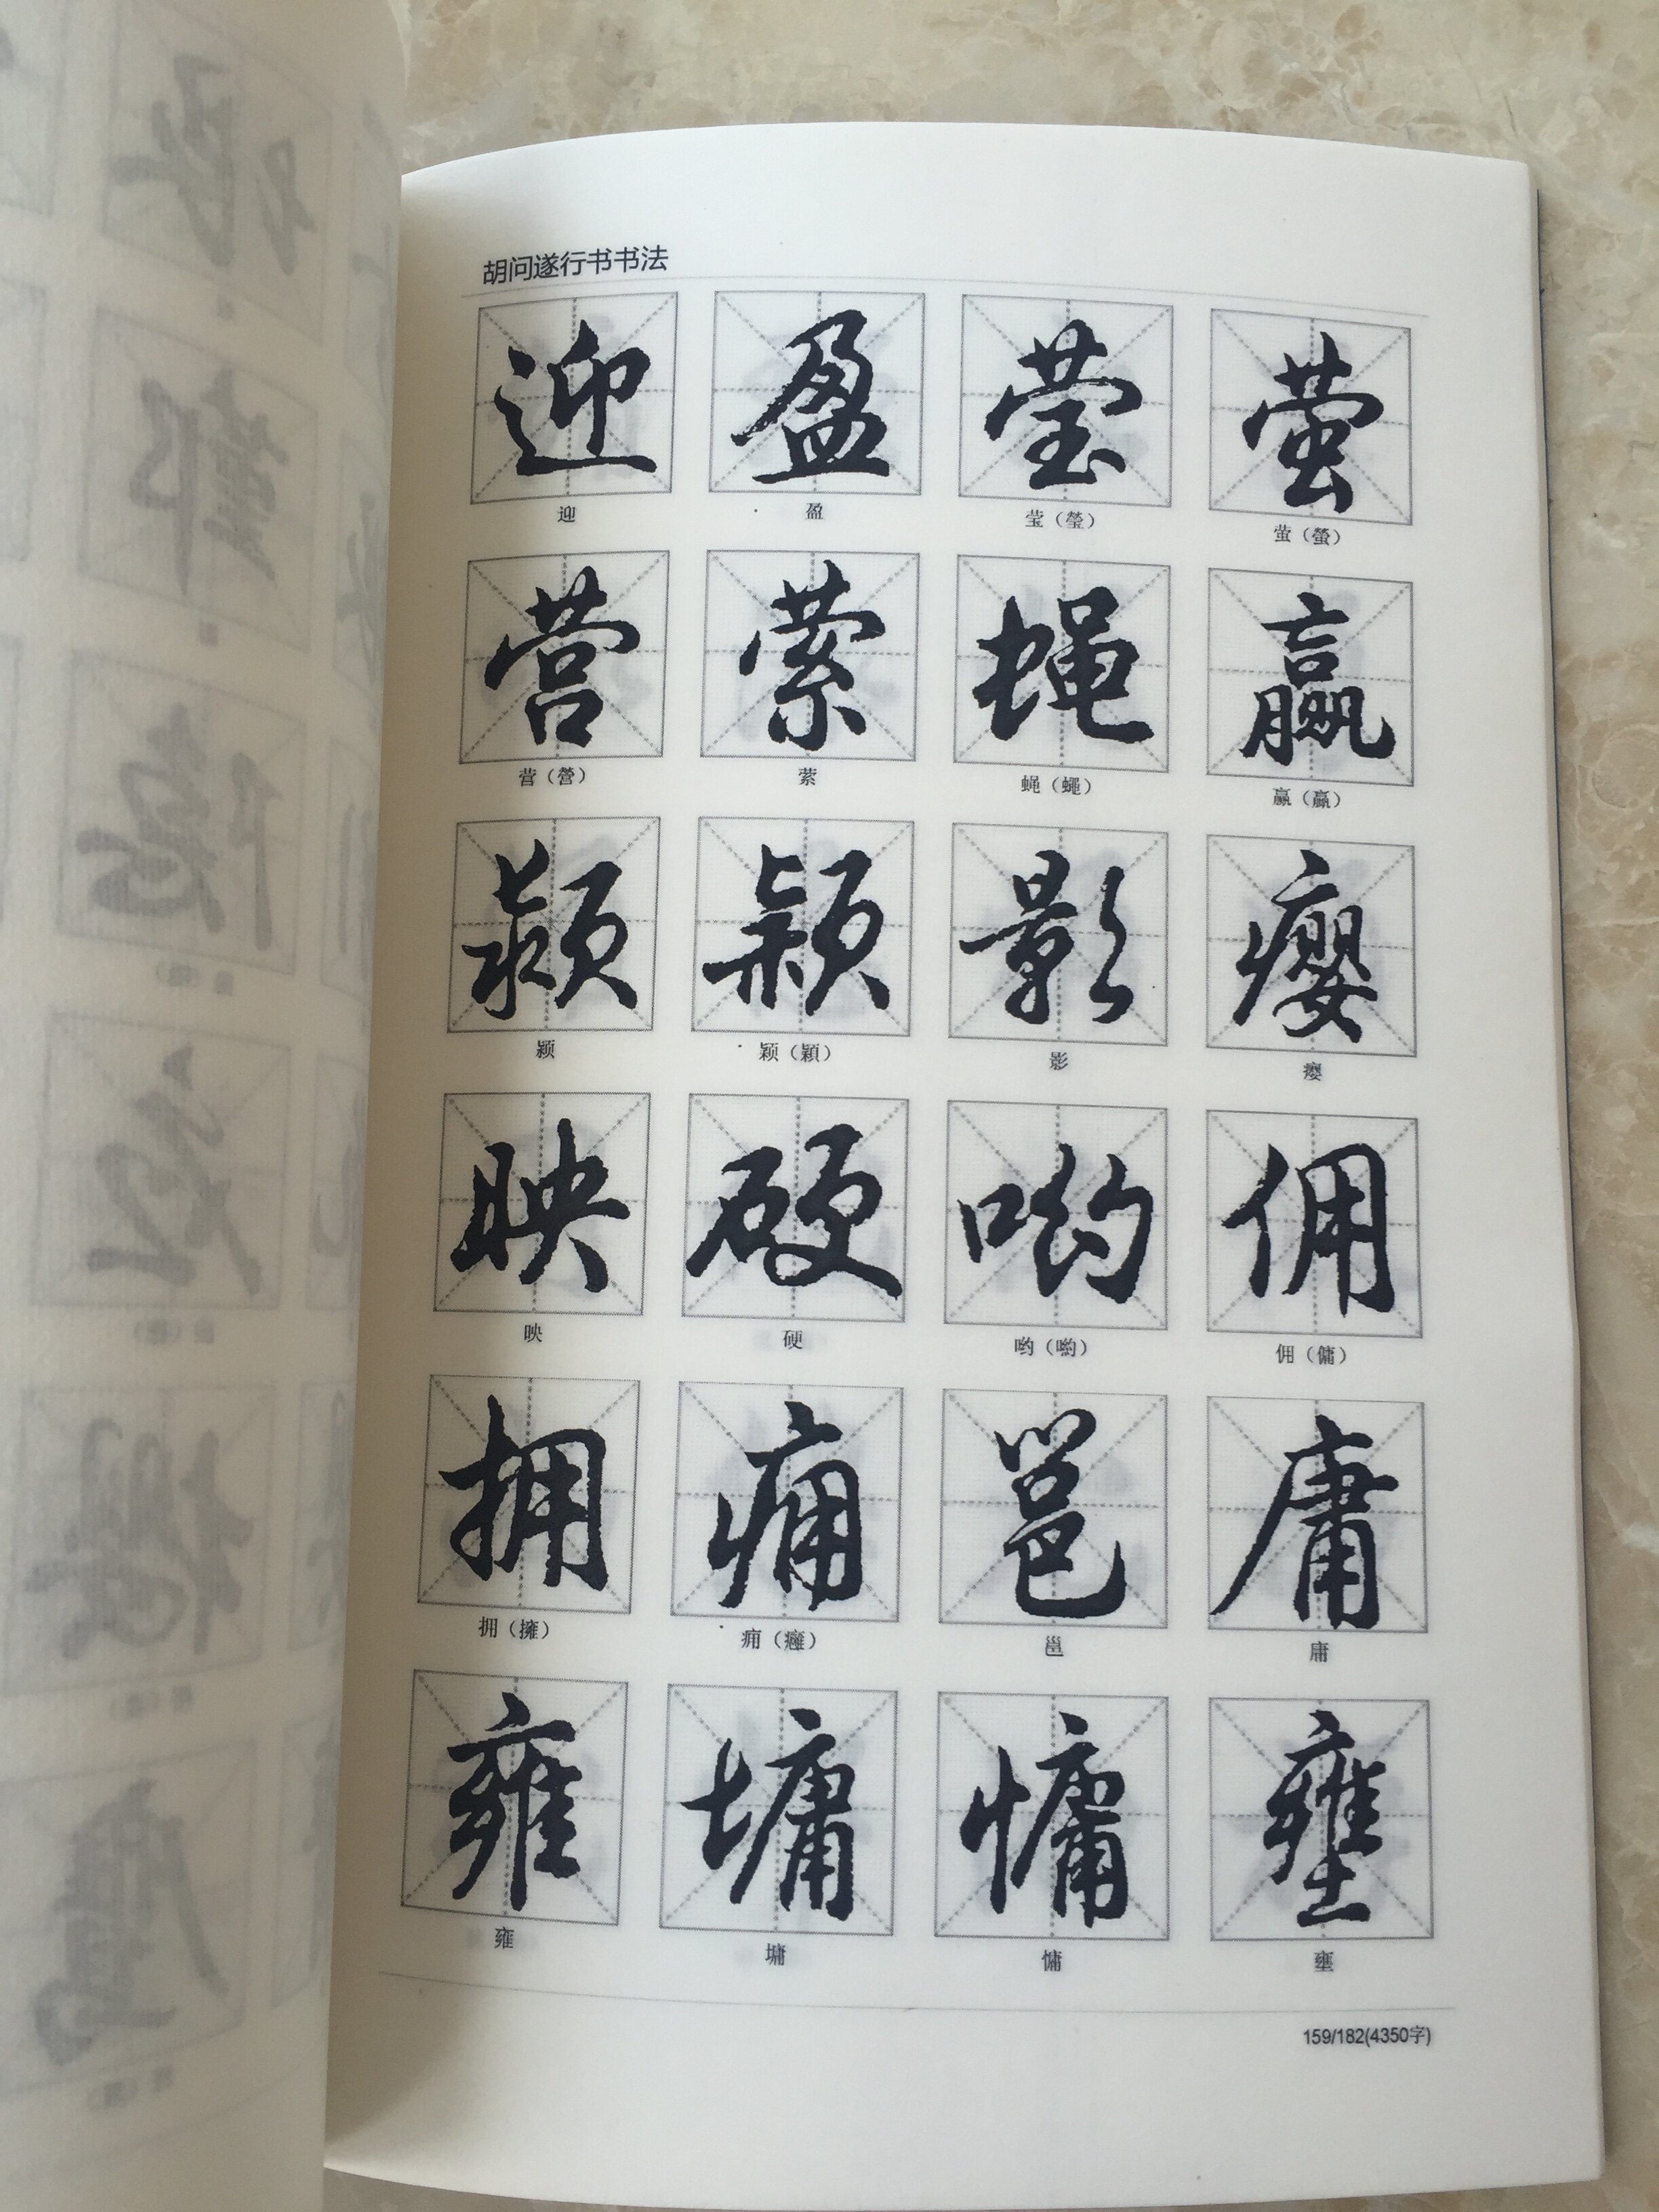 胡问遂行书书法
迎 盈 莹 萤
迎 盈 莹（瑩） 萤（螢）
营 萦 蝇 赢
营（營） 萦 蝇（蠅） 赢（贏）
颍 颖 影 瘿
颍 颖（穎） 影 瘿
映 硬 哟 佣
映 硬 哟（喲） 佣（傭）
拥 痈 邕 庸
拥（擁） 痈（癰） 邕 庸
雍 墉 慵 壅
雍 墉 慵 壅
159/182(4350字)